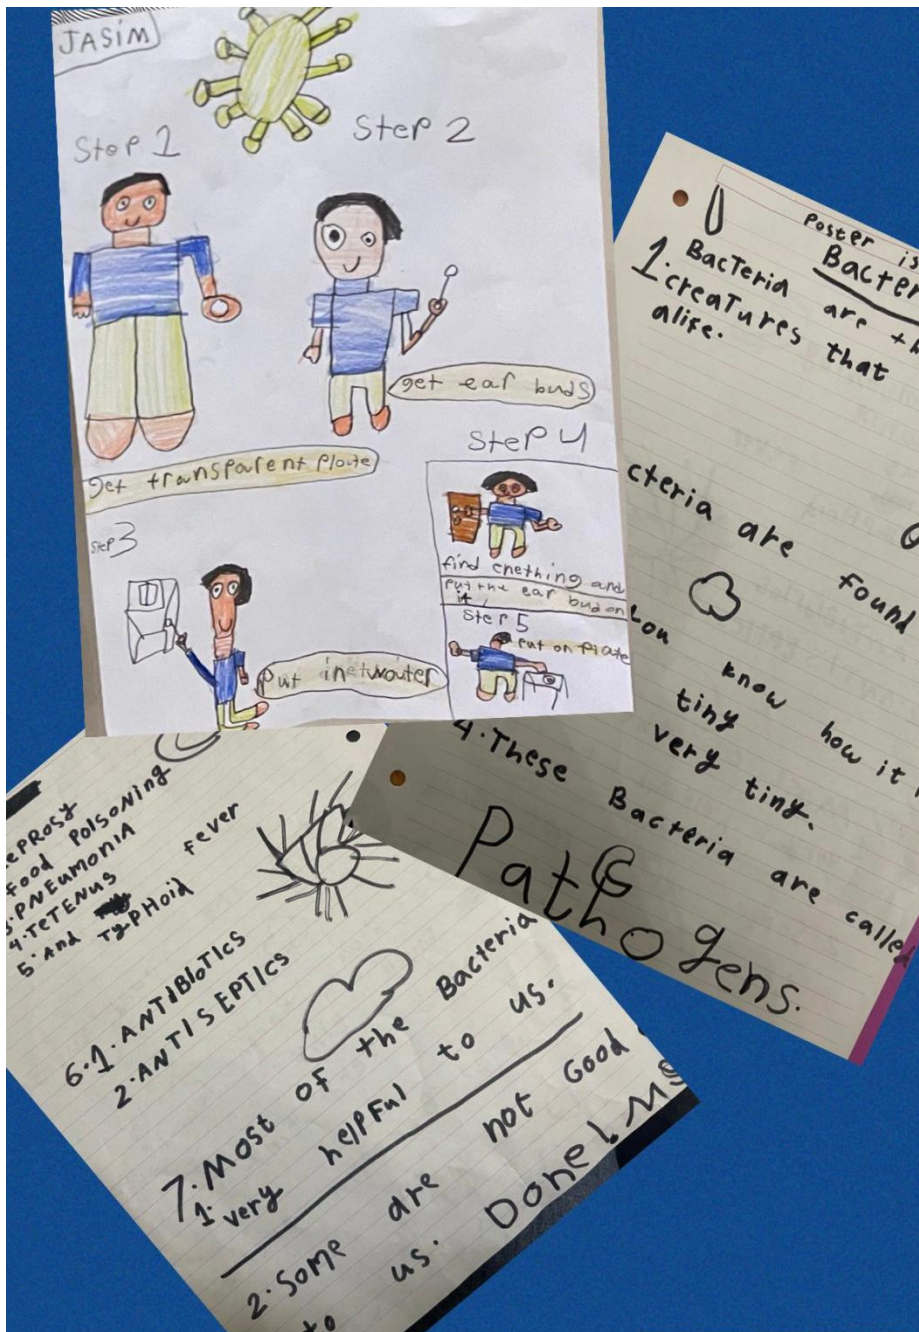 JASIM
Step 1
Step 2
get ear buds
get transparent Plate
Step 3
Put in
Step 4
find enething and
Put the ear bud on
it
Step 5
Put on Plate
Poster is
Bacter
1. Bacteria are th
creatures that
alife.
cteria are found
you know how it
tiny
very tiny.
4. These Bacteria are called
Pathogens.
ePROSY
Food POISONING
3. PNEUMONIA
4. TeTENUS
5. And TyPHoid fever
6.1. ANTIBIOTICS
2. ANTISEPTICS
7. Most of the Bacteria
1. very helpful to us.
2. Some are not Good
to us. Done!